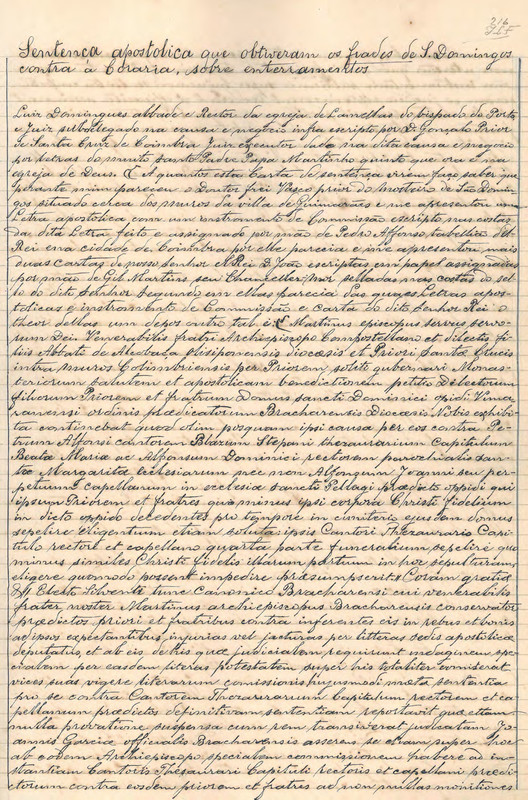 216
Sentença apostolica que obtiveram os frades de S. Domingos
contra à Coraria, sobre enterramentos
Luiz Domingues abbade e Rector da egreja de Lamellas do bispado do Porto
e Juiz subdelegado na causa e negocio infra escripto por D. Gonçalo Prior
de Santa Cruz de Coimbra Juiz executor dado na dita causa e negocio
por letras do muito Santo Padre Papa Martinho quinto que ora é na
egreja de Deus. A quantos esta Carta de sentença virem faço saber que
perante mim pareceu o Doutor frei Vasco prior do mosteiro de São Domin-
gos situado cerca dos muros da villa de Guimarães e me apresentou uma
Letra apostolica com um instromento de Commissão escripto nas costas
da dita Letra feito e assignado por mão de Pedro Affonso tabellião del
Rei em a cidade de Coimbra por elle parecia e me apresentou mais
duas cartas de nosso Senhor El Rei D. João escriptas em papel assignadas
por mão de Gil Martins seu Chanceller Mor selladas nas costas do sel-
lo do dito Senhor segundo em ellas parecia das quaes Letras apos-
tolicas e instromento de Commissão e carta do dito Senhor Rei o
theor dellas um depos outro tal é: Martinus episcopus servus servo-
rum Dei. Venerabilis fratri Archiepiscopo Compostellano et dilectis fi-
liis Abbati de Alcobaça Ulixiponensis diocesis et Priori Santæ Crucis
intra muros Colimbriensis per Priorem, soliti gubernari Monas-
teriorum salutem et apostolicam benedictionem petitio Dilectorum
filiorum Priorem et fratrum Domus sancti Dominici opidi Vima-
ranensi ordinis prædicatorum Bracharensis Diocesis Nobis exhibi-
ta continebat quod olim posquam ipsi causa per eos contra Pe-
trum Alfonsi cantorem Blazium Stepani thezaurarium Capitulum
Beata Maria ac Alfonsum Dominici rectorem parochialis san-
tæ Margarita ecclesiarum nec non Alfonsum Joanni seu per-
petuum capellanum in ecclesia sancti Pellagi prædicto oppidi qui
ipsum Priorem et fratres quominus ipsi corpora Christi fidelium
in dicto oppido decedentes pro tempore in cimiterio ejusdem domus
sepelire eligentium etiam soluta ipsis Cantori Thezaurario Capi-
tulo rectore et capellano quarta parte funeralium sepelire quo
minus similes Christi fidelis illarum partium in hoc sepulturam
eligere quomodo possent impedire præsumpserit Coram gratia
Electo Silvensi tunc Canonico Bracharensi cui venerabilis
frater noster Martinus archiepiscopus Bracharensis conservator
prædictos priori et fratribus contra inferentes eis in rebus et bonis
ad ipsos expectantibus injurias vel jacturas per litteras sedis apostolicæ
deputatus et ab eis de his quæ judicialem requirunt indaginem spe-
cialem per easdem literas potestatem super his totaliter comiserat
vices suas vigore literarum comissionis hujusmodi mota sententia
pro se contra Cantorem Thezaurarium Capitulum rectorem et ca-
pellanum prædictos definitivam sententiam reportavit quæ etiam
nulla provocatione suspensa cum rem transiverat judicatam Jo-
annis Garcia officialis Bracharensis asserens se etiam super hoc
ab eodem Archiepiscopo specialem commissionem habere ad in-
stantiam Cantoris Thesaurari Capituli rectoris et capellani prædic-
torum contra eosdem priorem et fratres ad non nullas monitiones